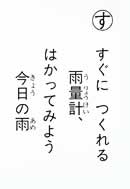 す
すぐに つくれる
雨量計、
うりょうけい
はかってみよう
今日の雨
きょう
あめ